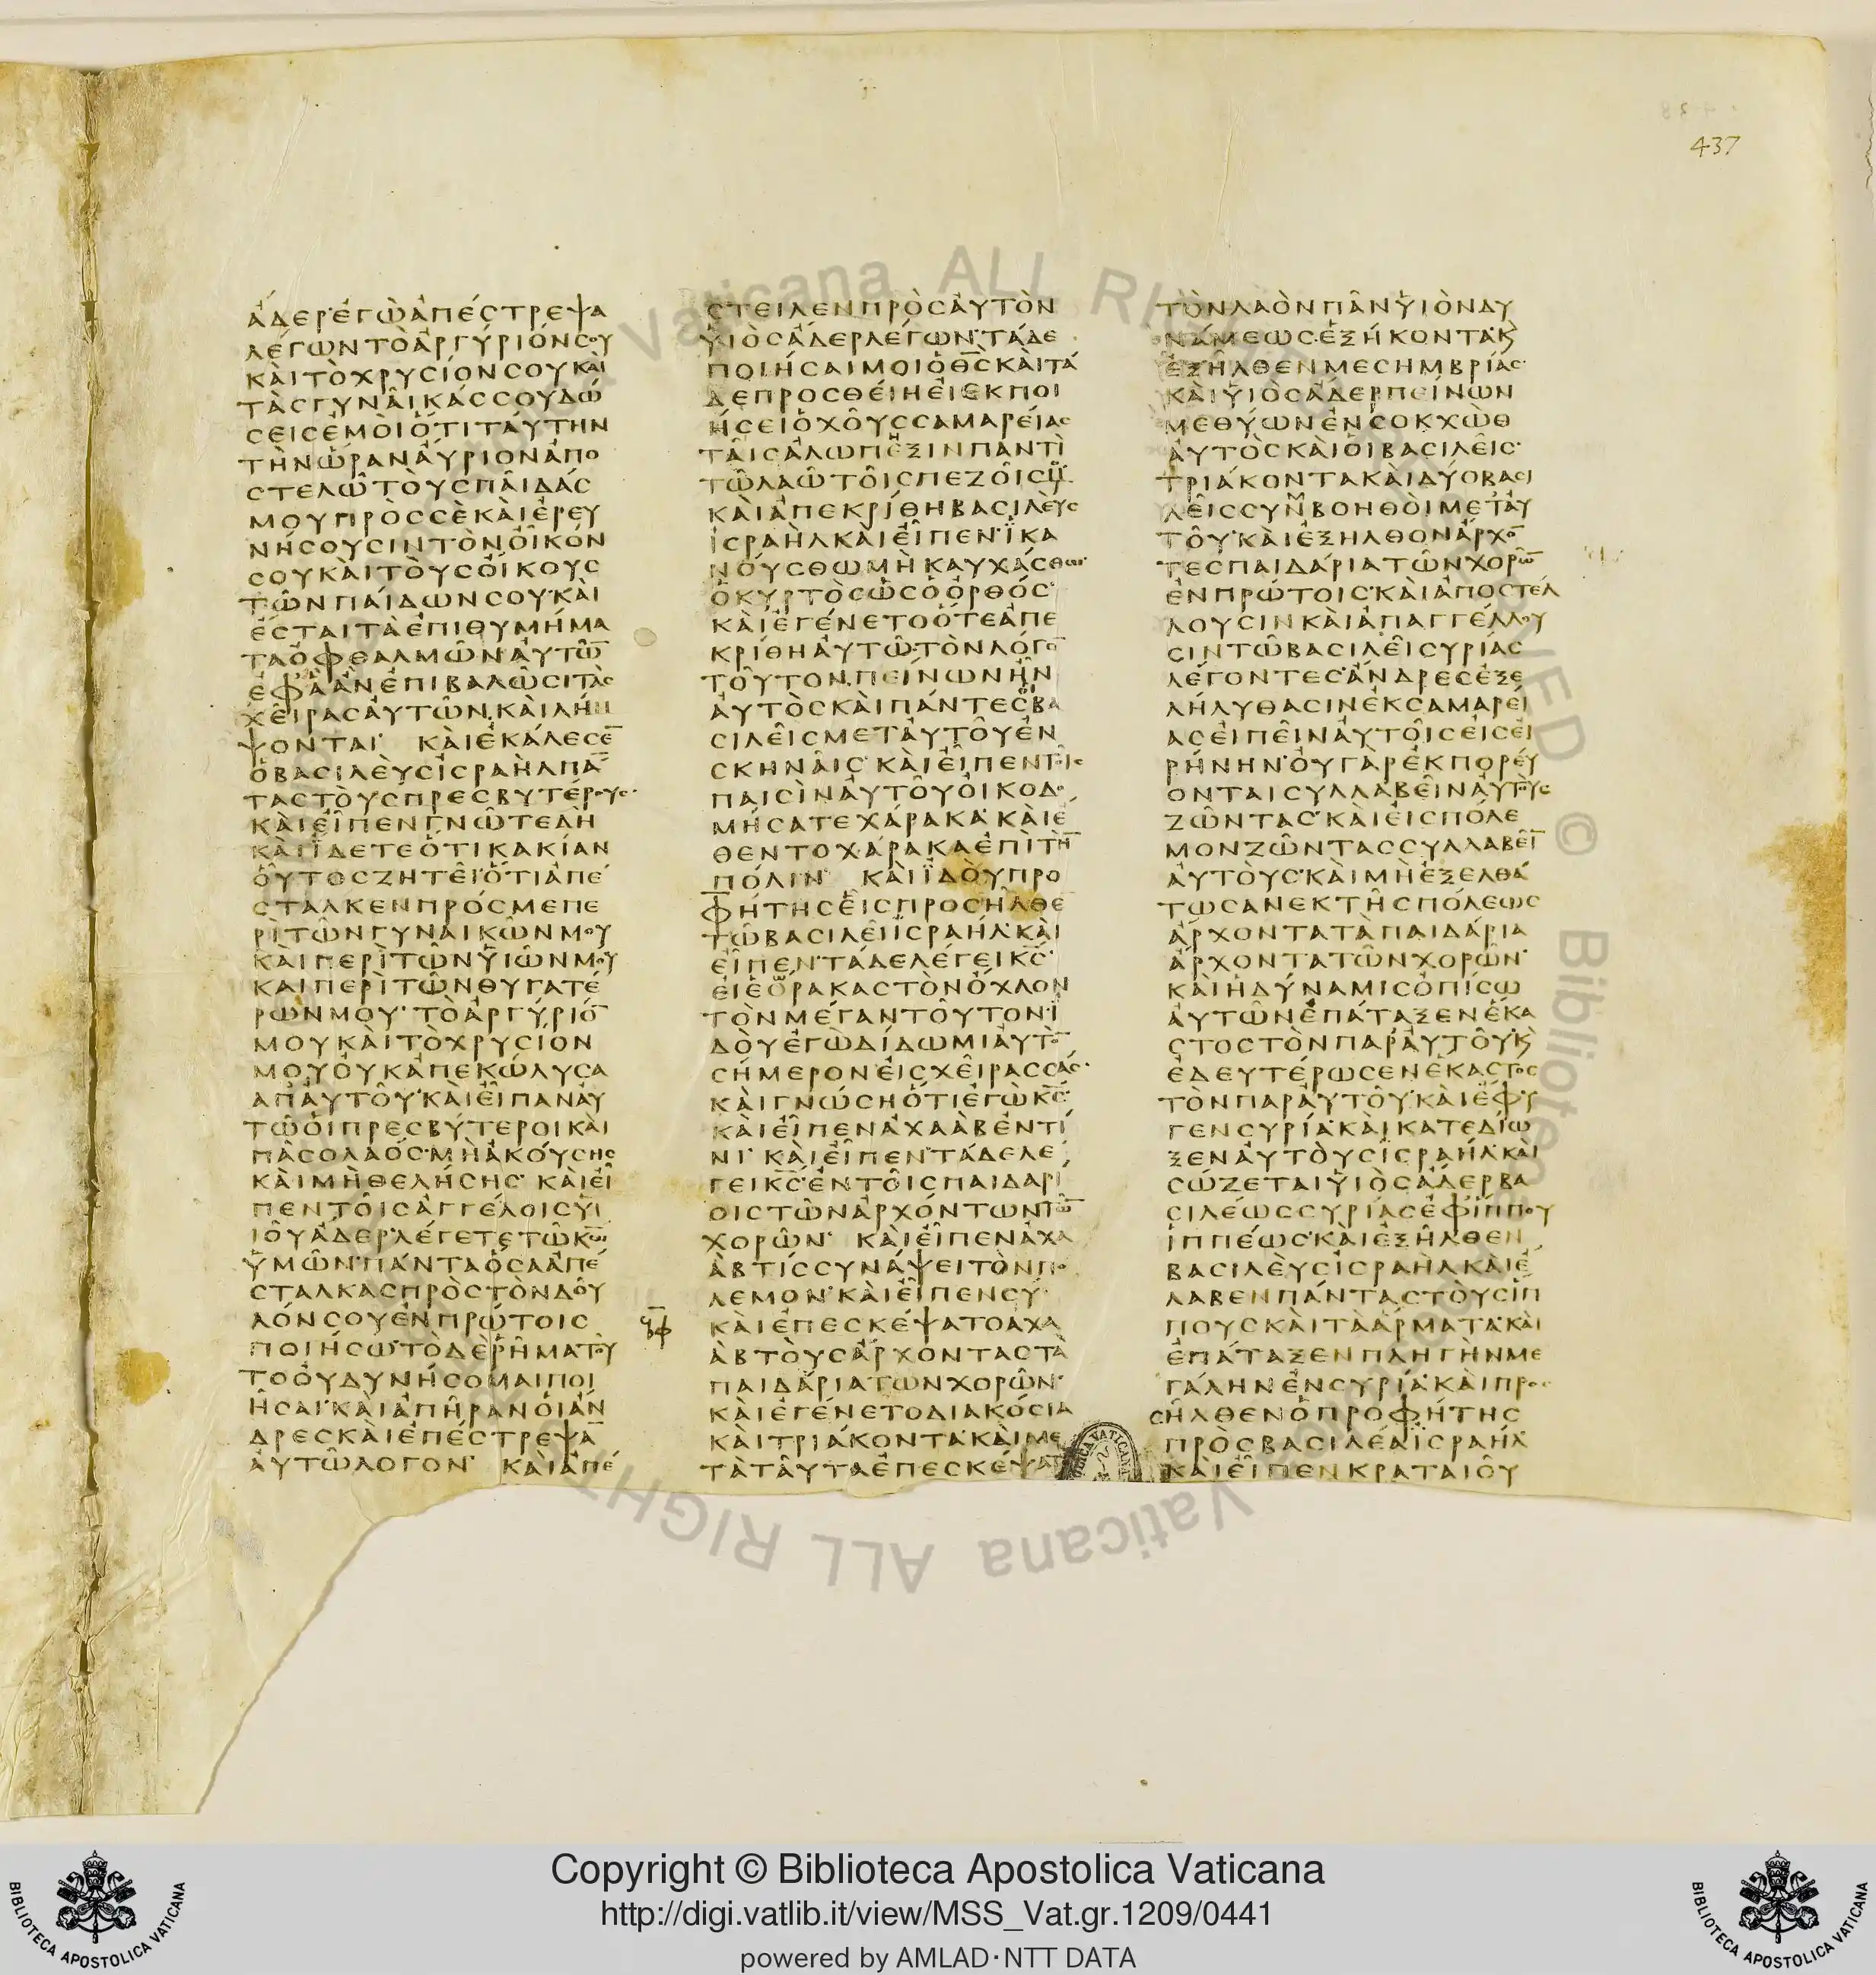 437
ἀδερ·ἐγὼἀπέστρεψα
λέγωντὸἀργύριόνσου
καὶτὸχρυσίονσουκαὶ
τὰσγυναῖκάσσουδώ
σεισἐμοὶὅτιταύτην
τὴνὥραναὔριονἀπο
στελῶτοὺσπαῖδάσ
μουπρὸσσὲκαὶἐρευ
νήσουσιντὸνοἶκόν
σουκαὶτοὺσοἴκουσ
τῶνπαίδωνσου·καὶ
ἔσταιτὰἐπιθυμήμα
ταὀφθαλμῶν·αὐτω̄
ἐφ'ἃἂνἐπιβαλῶσιτὰσ
χεῖρασαὐτῶν·καὶλήμ
ψονται· καὶἐκάλεσε̄
ὁβασιλεὺσἰσραὴλπά̄
ταστοὺσπρεσβυτέρουσ·
καὶεἶπενγνῶτεδὴ
καὶἴδετεὅτικακίαν
οὗτοσζητεῖ·ὅτιἀπέ
σταλκενπρόσμεπε
ρὶτῶνγυναικῶνμου
καὶπερὶτῶνυἱῶνμου
καὶπερὶτῶνθυγατέ
ρωνμου· τὸἀργύριό̄
μουκαὶτὸχρυσίον
μουοὐκἀπεκώλυσα
ἀπ'αὐτοῦ·καὶεἶπαναὐ
τῶοἱπρεσβύτεροικαὶ
πᾶσολαόσ·μὴἀκούσησ
καὶμὴθελήσησ· καὶεἶ
πεντοῖσἀγγέλοισυἱ
ιοῦἄδερ·λέγετετῶκω̄
ὑμῶν·πάνταὅσαἀπέ
σταλκασπρὸστὸνδοῦ
λόνσουἐνπρώτοισ
ποιήσω·τὸδὲῥῆματοῦ
τοοὐδυνήσομαιποι
ῆσαι·καὶἀπῆρανοἱἄν
δρεσκαὶἐπέστρεψᾱ
αὐτῶλογον· καὶἀπέ
στειλενπρὸσαὐτὸν
υἱὸσἄδερλέγων·τάδε
ποιήσαιμοιὁθ̄σ̄καὶτά
δεπροσθείηεἰεκποι
ήσειὁχοῦσσαμαρείασ
ταῖσἀλώπεξινπαντὶ
τῶλαῶτοῖσπεζοῖσμȣ·
καὶἀπεκρίθηβασιλεὺσ
ἰσραὴλκαὶεἶπεν·ἱκα
νούσθωμὴκαυχάσθω·
ὁκυρτὸσὡσὁὀρθόσ·
καὶἐγένετοὅτεἀπε
κρίθηαὐτῶ·τὸνλόγο̄
τοῦτον·πείνωνἦν
αὐτὸσκαὶπάντεσοἱβα
σιλεῖσμετ'αὐτοῦἐν
σκηναῖσ· καὶεἶπεντοῖσ
παισὶναὐτοῦοἰκοδο
μήσατεχάρακα·καὶἔ
θεντοχάρακαἐπὶτὴ̄
πόλιν· καὶἰδοὺπρο
φήτησεἷσπροσῆλθε
τῶβασιλεῖἰσραήλ·καὶ
εἶπεν·τάδελέγεικ̄σ̄·
εἰἑώρακαστὸνὄχλον
τὸνμέγαντοῦτον·ἰ
δοὺἐγὼδίδωμιαὐτὸ̄
σήμερονεἰσχεῖρασσάσ·
καὶγνώσηὅτιἐγὼκ̄σ̄·
καὶεἶπεναχαὰβἐντί
νι· καὶεἶπεν·τάδελέ
γεικ̄σ̄·ἐντοῖσπαιδαρί
οιστῶνἀρχόντωντω̄
χορῶν· καὶεἶπεναχα
ὰβτίσσυνάψειτὸνπο
λεμον·καὶεἶπενσύ·
καὶἐπεσκέψατοαχα
ὰβτοὺσἄρχονταστὰ
παιδάριατῶνχορῶν·
καὶἐγένετοδιακόσια
καὶτριάκοντα·καὶμε
τὰταῦταἐπεσκέψατο
τὸνλαὸνπᾶνυἱὸνδυ
νάμεωσ·ἑξήκοντακ
ἐξῆλθενμεσημβρίασ·
καὶυἱὸσἄδερπείνων
μεθύωνἐνσοκχὼθ
αὐτὸσκαὶοἱβασιλεῖσ·
τριάκοντακαὶδύοβασι
λεῖσσυμβοηθοὶμετ'αὐ
τοῦ·καὶἐξῆλθονἄρχο̄
τεσπαιδάριατῶνχορῶ̄
ἐνπρώτοισ·καὶἀποστέλ
λουσινκαὶἀπαγγέλλου
σιντῶβασιλεῖσυρίασ
λέγοντεσ·ἄνδρεσἐξε
λήλυθασινἐκσαμαρεί
ασεἰπεῖναὐτοῖσεἰσεἰ
ρήνην·οὐγὰρἐκπορεύ
ονταισυλλαβεῖναὐτοὺσ
ζῶντασ·καὶεἰσπόλε
μονζῶντασσυλλαβεῖ̄
αὐτούσ·καὶμὴἐξελθά
τωσανεκτῆσπόλεωσ
ἄρχοντατὰπαιδάρια
ἄρχοντατῶνχορῶν·
καὶἡδύναμισὀπίσω
αὐτῶνἐπάταξενἕκα
στοστὸνπαρ'αὐτοῦ·κ
ἐδευτέρωσενἕκαστοσ
τὸνπαραὐτοῦ·καὶἔφυ
γενσυρία·καὶκατεδίω
ξεναὐτοὺσἰσραήλ·καὶ
σώζεταιυἱὸσἄδερβα
σιλέωσσυρίασἐφ'ἵππου
ἱππέωσ·καὶἐξῆλθεν
βασιλεὺσἰσραὴλκαὶἔ
λαβενπάνταστοὺσἵπ
πουσκαὶτὰἅρματα·καὶ
ἐπάταξενπληγὴνμε
γάληνἐνσυρία·καὶπρο
σῆλθενὁπροφήτησ
πρὸσβασιλέαἰσραήλ
καὶεἶπενκραταιοῦ
Copyright © Biblioteca Apostolica Vaticana
http://digi.vatlib.it/view/MSS_Vat.gr.1209/0441
powered by AMLAD·NTT DATA
BIBLIOTECA APOSTOLICA VATICANA
BIBLIOTECA APOSTOLICA VATICANA